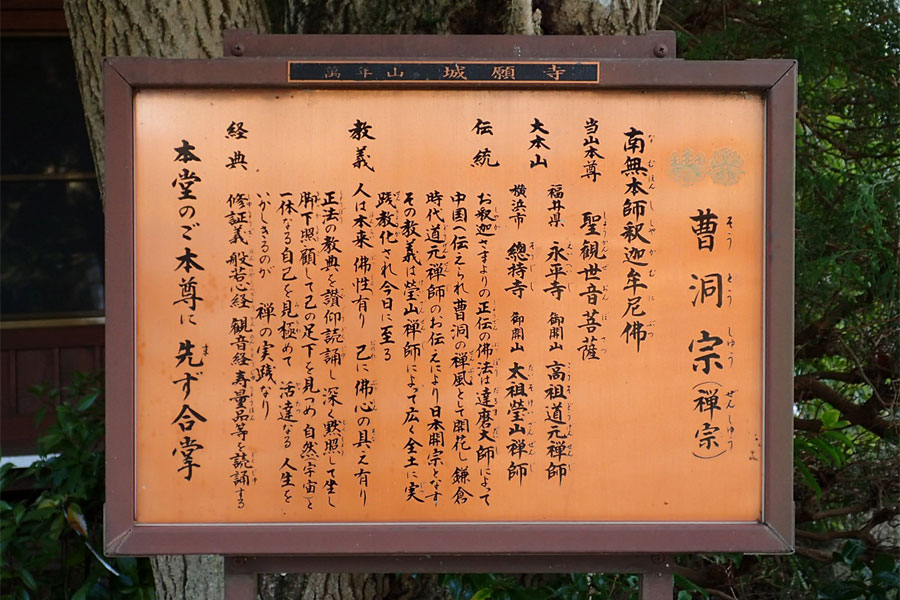 萬年山 城願寺
曹洞宗(禅宗)
南無本師釈迦牟尼佛
当山本尊 聖観世音菩薩
大本山 福井県 永平寺 御開山 高祖道元禅師
横浜市 總持寺 御開山 太祖瑩山禅師
伝統 お釈迦さまよりの正伝の佛法は達磨大師によって
中国へ伝えられ曹洞の禅風として開花し鎌倉
時代道元禅師のお伝えにより日本開宗となす
その教義は瑩山禅師によって広く全土に実
践教化され今日に至る
教義 人は本来佛性有り 己に佛心の具え有り
正法の教典を讃仰読誦し深く黙照して坐し
脚下照顧して己の足下を見つめ自然(宇宙)と
一体なる自己を見極めて 活達なる 人生を
いかしきるのが 禅の実践なり
経典 修証義 般若心経 観音経 寿量品等を読誦する
本堂のご本尊に 先ず合掌